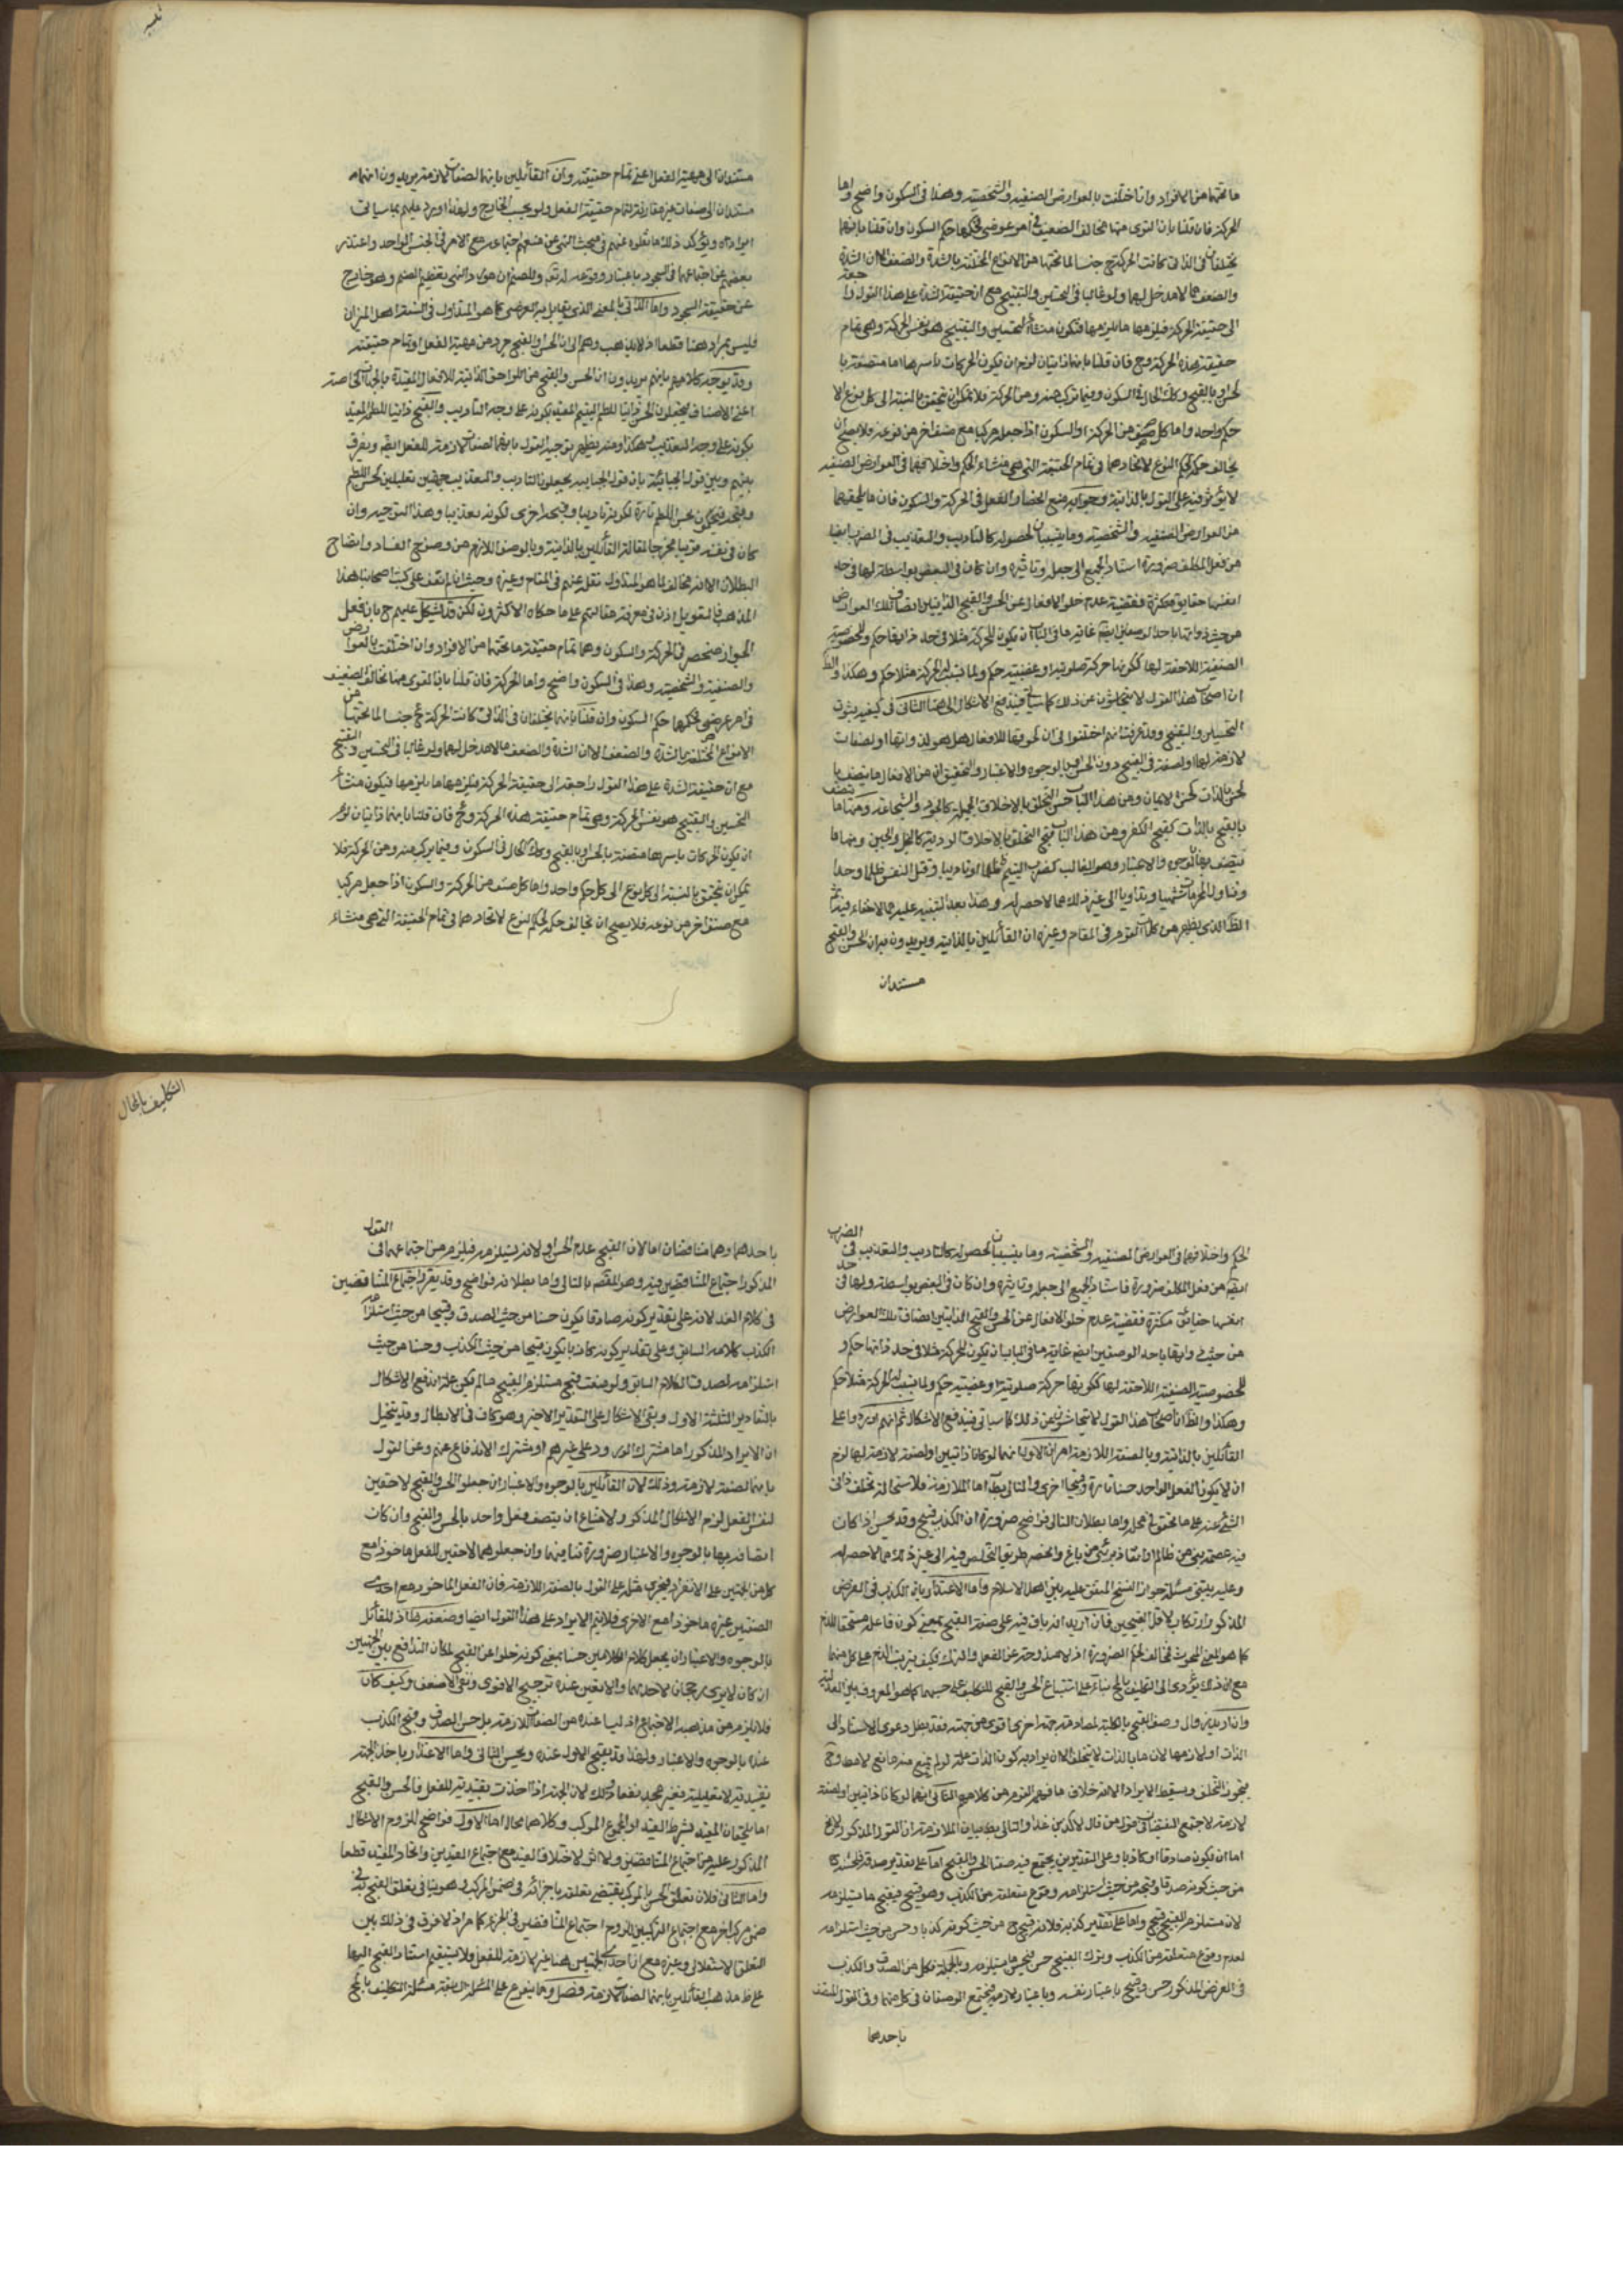 ما تحتها من الافراد وان اختلفت بالعوارض الصنفيه والشخصيته وهذا فى السكون واضح واما
الحركة فان قلنا بان القوى منها مخالف الضعيف فى امر عرضى فحكمها حكم السكون وان قلنا بانهما
يختلفان فى الذاتى كانت الحركة ح جنسا لما تحتها من الانواع المختلفة بالشدة والضعف الا ان الشدة
والضعف مما لا مدخل لهما ولو غالبا فى التحسين والتقبيح مع ان حقيقة الشدة على هذا القول راجعة
الى حقيقة الحركة فيلزمها ما يلزمها فيكون منشأ التحسين والتقبيح هو نفس الحركة وهى تمام
حقيقة هذه الحركة وح فان قلنا بانهما ذاتيان لزم ان يكون الحركات باسرها اما متصفة با
لحسن او بالقبيح وكك الحال فى السكون وفيما تركب منه ومن الحركة فلا يمكن ان يتحقق بالنسبة الى كل نوع الا
حكم واحد واما كل صنف من الحركة او السكون اذا جعل مركبا مع صنف اخر من نوعه فلا يصح ان
يخالف حكمه لحكم النوع لاتحادهما فى تمام الحقيقة التى هى منشاء الحكم واختلافهما فى العوارض الصنفيه
لا يؤثر فيه على القول بالذاتية وجوابه منع انحصار الفعل فى الحركة والسكون فان ما يلحقهما
من العوارض الصنفيه والشخصيته وما يتسببان لحصوله كالتاديب والتعذيب فى الضرب ايضا
من فعل المكلف ضرورة استناد الجميع الى جعله وتاثيره وان كان فى البعض بواسطة ولها فى حد
انفسها حقايق متكثرة فقضية عدم خلو الافعال عن الحسن والقبح الذاتيين اتصاف تلك العوارض
من حيث ذواتها باحد الوصفين ايضا غاية ما فى الباب ان يكون للحركة مثلا فى حد ذاتها حكم وللخصوصية
الصنفية اللاحقة لها ككونها حركة صلوتية او غصبية حكم ولما تتسبب له الحركة مثلا حكم وهكذا والظ
ان اصحاب هذا القول لا يتحاشون عن ذلك كما سياتى فيندفع الاشكال الى هنا الثانى فى كيفية ثبوت
التحسين والتقبيح وقد عرفت انهم اختلفوا فى ان لحوقها للافعال هل هو لذواتها او لصفات
لازمة لها او لصفة فى القبيح دون الحسن او بالوجوه والاعتبار والتحقيق ان من الافعال ما يتصف با
لحسن بالذات كحسن الايمان ومن هذا الباب حسن التخلق بالاخلاق الجميلة كالجود والشجاعة ومنها ما يتصف
بالقبح بالذات كقبح الكفر ومن هذا الباب قبح التخلق بالاخلاق الردية كالبخل والجبن ومنها ما
يتصف بهما بالوجوه والاعتبار وهو الغالب كضرب اليتيم ظلما او تاديبا وقتل النفس ظلما وحدا
وتناول المحرمات تشهيا وتداويا الى غير ذلك مما لا حصر له وهذا بعد التنبيه عليه مما لا خفاء فيه ثم
الظ الذى يظهر من كلمات القوم فى المقام وغيره ان القائلين بالذاتية يريدون به ان الحسن والقبح
مستندان
مستندان الى مهية الفعل اعنى تمام حقيقته وان القائلين بانهما لصفات لازمة يريدون انهما
مستندان الى صفات غير مفارقة لتمام حقيقة الفعل ولو بحسب الخارج ولهذا اورد عليهم بما سياتى
ايراده ويؤكد ذلك ما نقلوه عنهم فى مبحث النهى عن منعهم اجتماعه مع الامر فى الجنس الواحد واعتذر
بعضهم عن اجتماعهما فى السجود باعتبار وقوعه لله تعالى وللصنم ان هورد النهى بتعظيم الصنم وهو خارج
عن حقيقة السجود واما الذاتى بالمعنى الذى يقابل به العرضى كما هو المتداول فى السنة اهل الميزان
فليس بمراد هنا قطعا اذ لا يذهب وهم الى ان الحسن والقبح جزء من مهية الفعل او تمام حقيقته
وقد يوجه كلامهم بانهم يريدون ان الحسن والقبح من اللواحق الذاتية للافعال المقيدة بالجهات الخاصة
اعنى الاصناف فيجعلون الحسن ذاتيا للطم اليتيم المقيد بكونه على وجه التاديب والقبح ذاتيا للطم المقيد
بكونه على وجه التعذيب وهكذا ومنه يظهر توجيه القول بانهما لصفات لازمة للفعل ايضا ويفرق
بينهم وبين قول الجبائية بان قول الجبائية يجعلون التاديب والتعذيب جهتين تعليليتين لحسن اللطم
وقبحه فيحكمون بحسن اللطم تارة لكونه تاديبا وقبحه اخرى لكونه تعذيبا وهذا التوجيه وان
كان فى نفسه قريبا مخرجا لمقالة القائلين بالذاتية وبالوصف اللازم من وضوح الفساد واتضاح
البطلان الا انه مخالف لما هو المتداول نقله عنهم فى المقام وغيره وحيث انا لم نقف على كتب اصحاب هذا
المذهب فالتعويل اذن فى معرفة مقالتهم على ما حكاه الاكثرون لكن قد يشكل عليهم ح بان فعل
الجوارح منحصر فى الحركة والسكون وهما تمام حقيقة ما تحتهما من الافراد وان اختلفت بالعوارض
والصنفية والشخصيته وهذا فى السكون واضح واما الحركة فان قلنا بان القوى منها مخالف الضعيف
فى امر عرضى فحكمها حكم السكون وان قلنا بانهما يختلفان فى الذاتى كانت الحركة ح جنسا لما تحتها من
الانواع المختلفة بالشدة والضعف الا ان الشدة والضعف مما لا مدخل لهما ولو غالبا فى التحسين والتقبيح
مع ان حقيقة الشدة على هذا القول راجعة الى حقيقة الحركة فيلزمها ما يلزمها فيكون منشأ
التحسين والتقبيح هو نفس الحركة وهى تمام حقيقة هذه الحركة وح فان قلنا بانهما ذاتيان لزم
ان يكون الحركات باسرها متصفة بالحسن او بالقبح وكك الحال فى السكون وفيما تركب منه ومن الحركة فلا
يمكن ان يتحقق بالنسبة الى كل نوع الى كل حكم واحد واما كل صنف من الحركة والسكون اذا جعل مركبا
مع صنف اخر من نوعه فلا يصح ان يخالف حكمه لحكم النوع لاتحادهما فى تمام الحقيقة التى هى منشاء
التكليف بالمحال
الحكم واختلافهما فى العوارض الصنفيه والشخصيته وما يتسببان لحصوله كالتاديب والتعذيب فى الضرب
ايضا من فعل المكلف ضرورة فاستناد الجميع الى جعله وتاثيره وان كان فى البعض بواسطة ولها فى حد
انفسها حقائق متكثرة فقضية عدم خلو الافعال عن الحسن والقبح الذاتيين اتصاف تلك العوارض
من حيث ذواتها باحد الوصفين ايضا غاية ما فى الباب ان يكون للحركة مثلا فى حد ذاتها حكم و
للخصوصية الصنفية اللاحقة لها ككونها حركة صلوتية او غصبية حكم ولما يتسبب له الحركة مثلا حكم
وهكذا والظ ان اصحاب هذا القول لا يتحاشون عن ذلك كما سياتى فيندفع الاشكال ثم انهم اوردوا على
القائلين بالذاتية وبالصفة اللازمة امران الاول انهما لو كانا ذاتيين او لصفة لازمة لها لزم
ان لا يكون الفعل الواحد حسنا تارة وقبيحا اخرى والتالى بط اما الملازمة فلاستحالة تخلف ذاتى
الشئ عنه على ما تحقق فى محله واما بطلان التالى فواضح ضرورة ان الكذب قبيح وقد يحسن اذا كان
فيه عصمة نبى من ظالم او انقاذ برئ من باغ وانحصر طريق التخلص فيه الى غير ذلك مما لا حصر له
وعليه يبتنى مسئلة جواز النسخ المتفق عليه بين اهل الاسلام واما الاعتذار بان الكذب فى الفرض
المذكور ارتكاب لاقل القبيحين فان اريد انه باق فيه على صفة القبح بمعنى كون فاعله مستحقا للذم
كما هو المعنى المبحوث فمخالف لحكم الضرورة اذ لا مندوحة عن الفعل والترك فكيف يترتب الذم على كل منهما
مع ان ذلك يؤدى الى التكليف بالمحال بناء على استتباع الحسن والقبح للتكليف على حسبهما كما هو المعروف بين العدلية
وان اريد زوال وصف القبح بالكلية لمصادمة جهة اخرى اقوى من جهته فقد بطل دعوى الاستناد الى
الذات او لازمها لان ما بالذات لا يتخلف الا ان يراد به كون الذات علة لو لم يمنع منه مانع لا مطلقا وح
يجوز التخلف ويسقط الايراد الا انه خلاف ما فهمه القوم من كلامهم الثانى انهما لو كانا ذاتيين او لصفة
لازمة لاجتمع النقيضان فى قول من قال لاكذبن غدا والتالى بط بيان الملازمة ان القول المذكور لا يخ
اما ان يكون صادقا او كاذبا وعلى التقديرين يجتمع فيه صفتا الحسن والقبح اما على تقدير صدقه فلحسنه
من حيث كونه صدقا وقبحه من حيث استلزامه وقوع متعلقه من الكذب وهو قبيح فيقبح ما يستلزمه
لان مستلزم القبيح قبيح واما على تقدير كذبه فلانه قبيح ح من حيث كونه كذبا وحسن من حيث استلزامه
لعدم وقوع متعلقه من الكذب وترك القبيح حسن فيحسن ما يستلزمه وبالجملة فكل من الصدق والكذب
فى الفرض المذكور حسن وقبيح باعتبار نفسه وباعتبار لازمه فيجتمع الوصفان فى كل منهما وفى القول المتصف
باحدهما
باحدهما وهما متناقضان اما لان القبيح عدم الحسن او لانه يستلزمه فيلزم من اجتماعهما فى القول
المذكور اجتماع المتناقضين فيه وهو المقصود بالتالى واما بطلانه فواضح وقد يقرر اجتماع المتناقضين
فى كلام الغد لانه على تقدير كونه صادقا يكون حسنا من حيث الصدق وقبيحا من حيث استلزامه
الكذب كلامه السابق وعلى تقدير كونه كاذبا يكون قبيحا من حيث الكذب وحسنا من حيث
استلزامه لصدق الكلام السابق ولو منعت قبح مستلزم القبيح ما لم يكن علة اندفع الاشكال
بالتقادير الثلثة الاول وبقى الاشكال على التقدير الاخير وهو كاف فى الابطال وقد يتخيل
ان الايراد المذكور اما مشترك الورود على غيرهم او مشترك الاندفاع عنهم وعن القول
بانهما لصفة لازمة وذلك لان القائلين بالوجوه والاعتبار ان جعلوا الحسن والقبح لاحقين
لنفس الفعل لزم الاشكال المذكور لامتناع ان يتصف فعل واحد بالحسن والقبح وان كان
اتصافه بهما بالوجوه والاعتبار ضرورة تنافيهما وان جعلوهما لاحقين للفعل ماخوذا مع
كل من الجهتين على الانفراد فيجرى مثله على القول بالصفة اللازمة فان الفعل الماخوذ مع احدى
الصفتين غيره ماخوذا مع الاخرى فلا يتم الايراد على هذا القول ايضا وضعفه ظ اذ للقائل
بالوجوه والاعتبار ان يجعل كلام الكلامين حسنا بمعنى كونه خلوا عن القبح لمكان التدافع بين الجهتين
ان كان لا يرى رجحان لاحدهما والا تعين عنده ترجيح الاقوى ونفى الاضعف وكيف كان
فلا يلزم من مذهبه الاجتماع اذ ليسا عنده من الصفات اللازمة بل حسن الصدق وقبح الكذب
عنده بالوجوه والاعتبار ولهذا قد يقبح الاول عنده ويحسن الثانى واما الاعتذار باخذ الجهة
تقييدية لا تعليلية فغير مجد نفعا وذلك لان الجهة اذا اخذت تقييدية للفعل فالحسن والقبح
اما يلحقان المقيد بشرط القيد او المجموع المركب وكلاهما محال اما الاول فواضح للزوم الاشكال
المذكور عليه من اجتماع المتناقضين ولا اثر لاختلاف القيد مع اجتماع القيدين واتحاد المقيد قطعا
واما الثانى فلان تعلق الحسن بالمركب يقتضى تعلقه باجزائه فى ضمن المركب وهو ينافى تعلق القبح به فى
ضمن مركب اخر مع اجتماع التركيبين للزوم اجتماع المتناقضين فى الجزء كما مر اذ لا فرق فى ذلك بين
التعلق الاستقلالى وغيره مع ان احدى الجهتين هنا غير لازمة للفعل فلا يستقيم استناد القبح اليها
على ظ مذهب القائلين بانهما لصفات لازمة فصل ومما يتفرع على المسئلة السابقة مسئلة التكليف بالمح